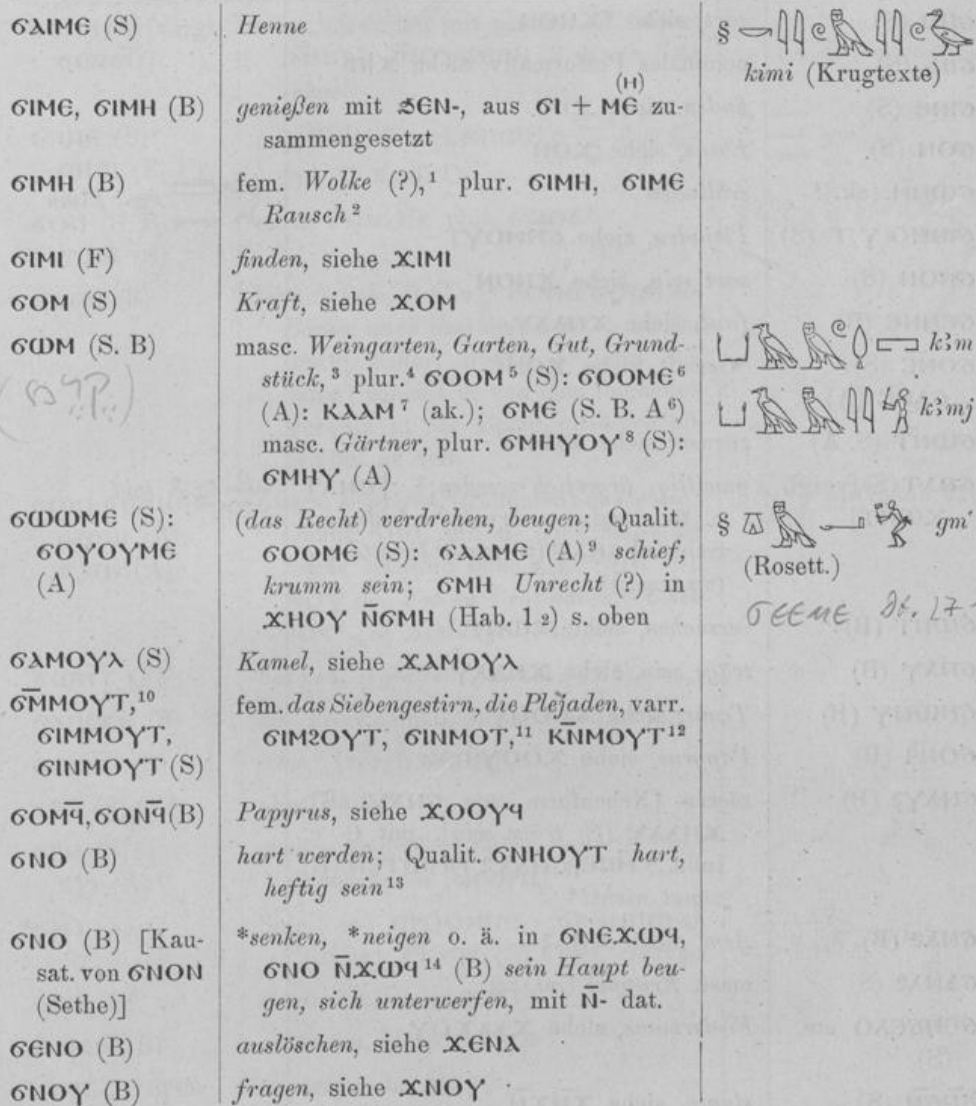 ϭⲁⲓⲙⲉ (S) Henne
kimi (Krugtexte)
ϭⲓⲙⲉ, ϭⲓⲙⲏ (B) genießen mit ϧⲉⲛ-, aus ϭⲓ + ⲙⲉ (ⲏ) zu-
sammengesetzt
ϭⲓⲙⲏ (B) fem. Wolke (?),¹ plur. ϭⲓⲙⲏ, ϭⲓⲙⲉ
Rausch²
ϭⲓⲙⲓ (F) finden, siehe ϫⲓⲙⲓ
ϭⲟⲙ (S) Kraft, siehe ϫⲟⲙ
ϭⲱⲙ (S. B) masc. Weingarten, Garten, Gut, Grund- kꜣm
stück,³ plur.⁴ ϭⲟⲟⲙ⁵ (S): ϭⲟⲟⲙⲉ⁶
(A): ⲕⲁⲁⲙ⁷ (ak.); ϭⲙⲉ (S. B. A⁶) kꜣmj
masc. Gärtner, plur. ϭⲙⲏⲩⲟⲩ⁸ (S):
ϭⲙⲏⲩ (A)
ϭⲱⲱⲙⲉ (S): (das Recht) verdrehen, beugen; Qualit. § gmꜥ
ϭⲟⲩⲟⲩⲙⲉ ϭⲟⲟⲙⲉ (S): ϭⲁⲁⲙⲉ (A)⁹ schief, (Rosett.)
(A) krumm sein; ϭⲙⲏ Unrecht (?) in
ϫⲏⲟⲩ ⲛ̄ϭⲙⲏ (Hab. 1 2) s. oben ϭⲉⲉⲙⲉ
ϭⲁⲙⲟⲩⲗ (S) Kamel, siehe ϫⲁⲙⲟⲩⲗ
ϭⲙ̄ⲙⲟⲩⲧ,¹⁰ fem. das Siebengestirn, die Plejaden, varr.
ϭⲓⲙⲙⲟⲩⲧ, ϭⲓⲙϩⲟⲩⲧ, ϭⲓⲛⲙⲟⲧ,¹¹ ⲕⲛ̄ⲙⲟⲩⲧ¹²
ϭⲓⲛⲙⲟⲩⲧ (S)
ϭⲟⲙϥ̄, ϭⲟⲛϥ̄ (B) Papyrus, siehe ϫⲟⲟⲩϥ
ϭⲛⲟ (B) hart werden; Qualit. ϭⲛⲏⲟⲩⲧ hart,
heftig sein¹³
ϭⲛⲟ (B) [Kau- *senken, *neigen o. ä. in ϭⲛⲉϫⲱϥ,
sat. von ϭⲛⲟⲛ ϭⲛⲟ ⲛ̄ϫⲱϥ¹⁴ (B) sein Haupt beu-
(Sethe)] gen, sich unterwerfen, mit ⲛ̄- dat.
ϭⲉⲛⲟ (B) auslöschen, siehe ϫⲉⲛⲁ
ϭⲛⲟⲩ (B) fragen, siehe ϫⲛⲟⲩ